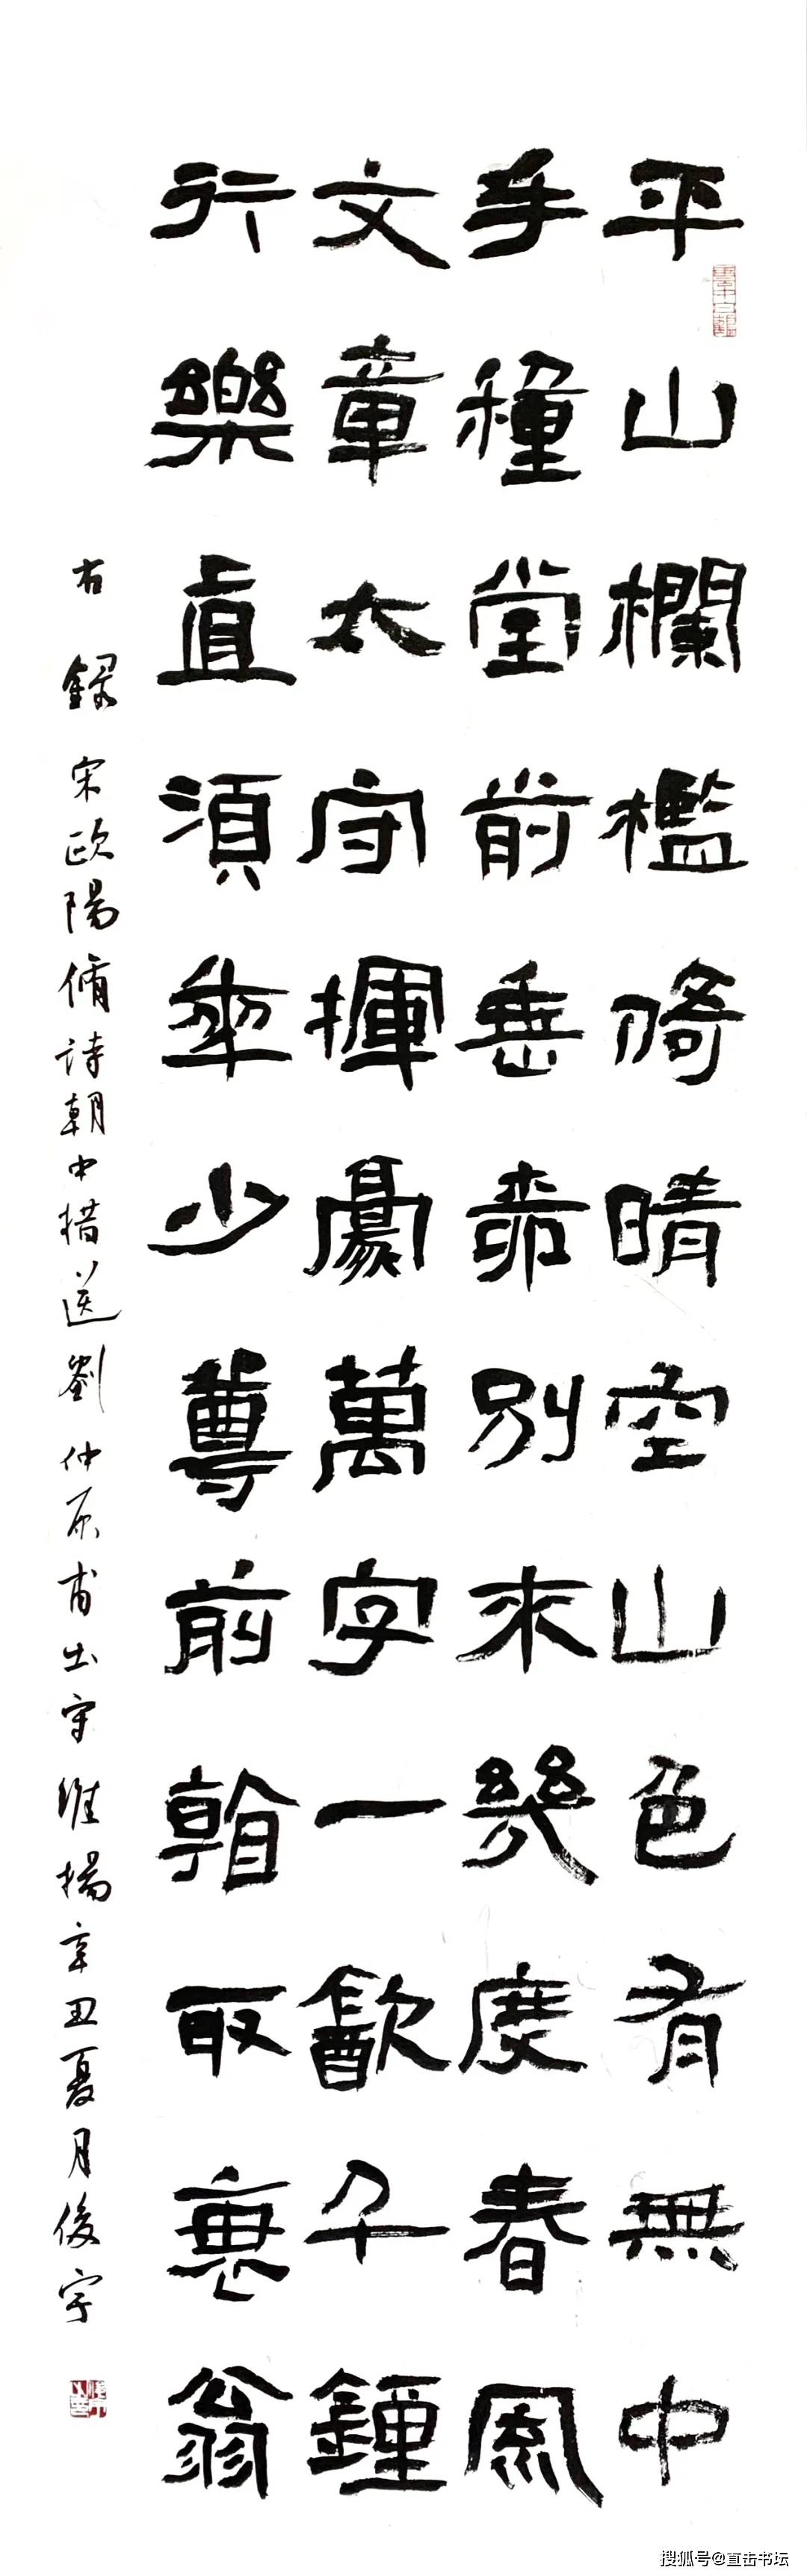 平山欄檻倚晴空山色有無中
手種堂前垂柳別來幾度春風
文章太守揮豪萬字一飲千鍾
行樂直須年少尊前看取衰翁
右錄宋歐陽脩詩朝中措送劉仲原甫出守維揚辛丑夏月俊宇
搜狐号@直击书坛